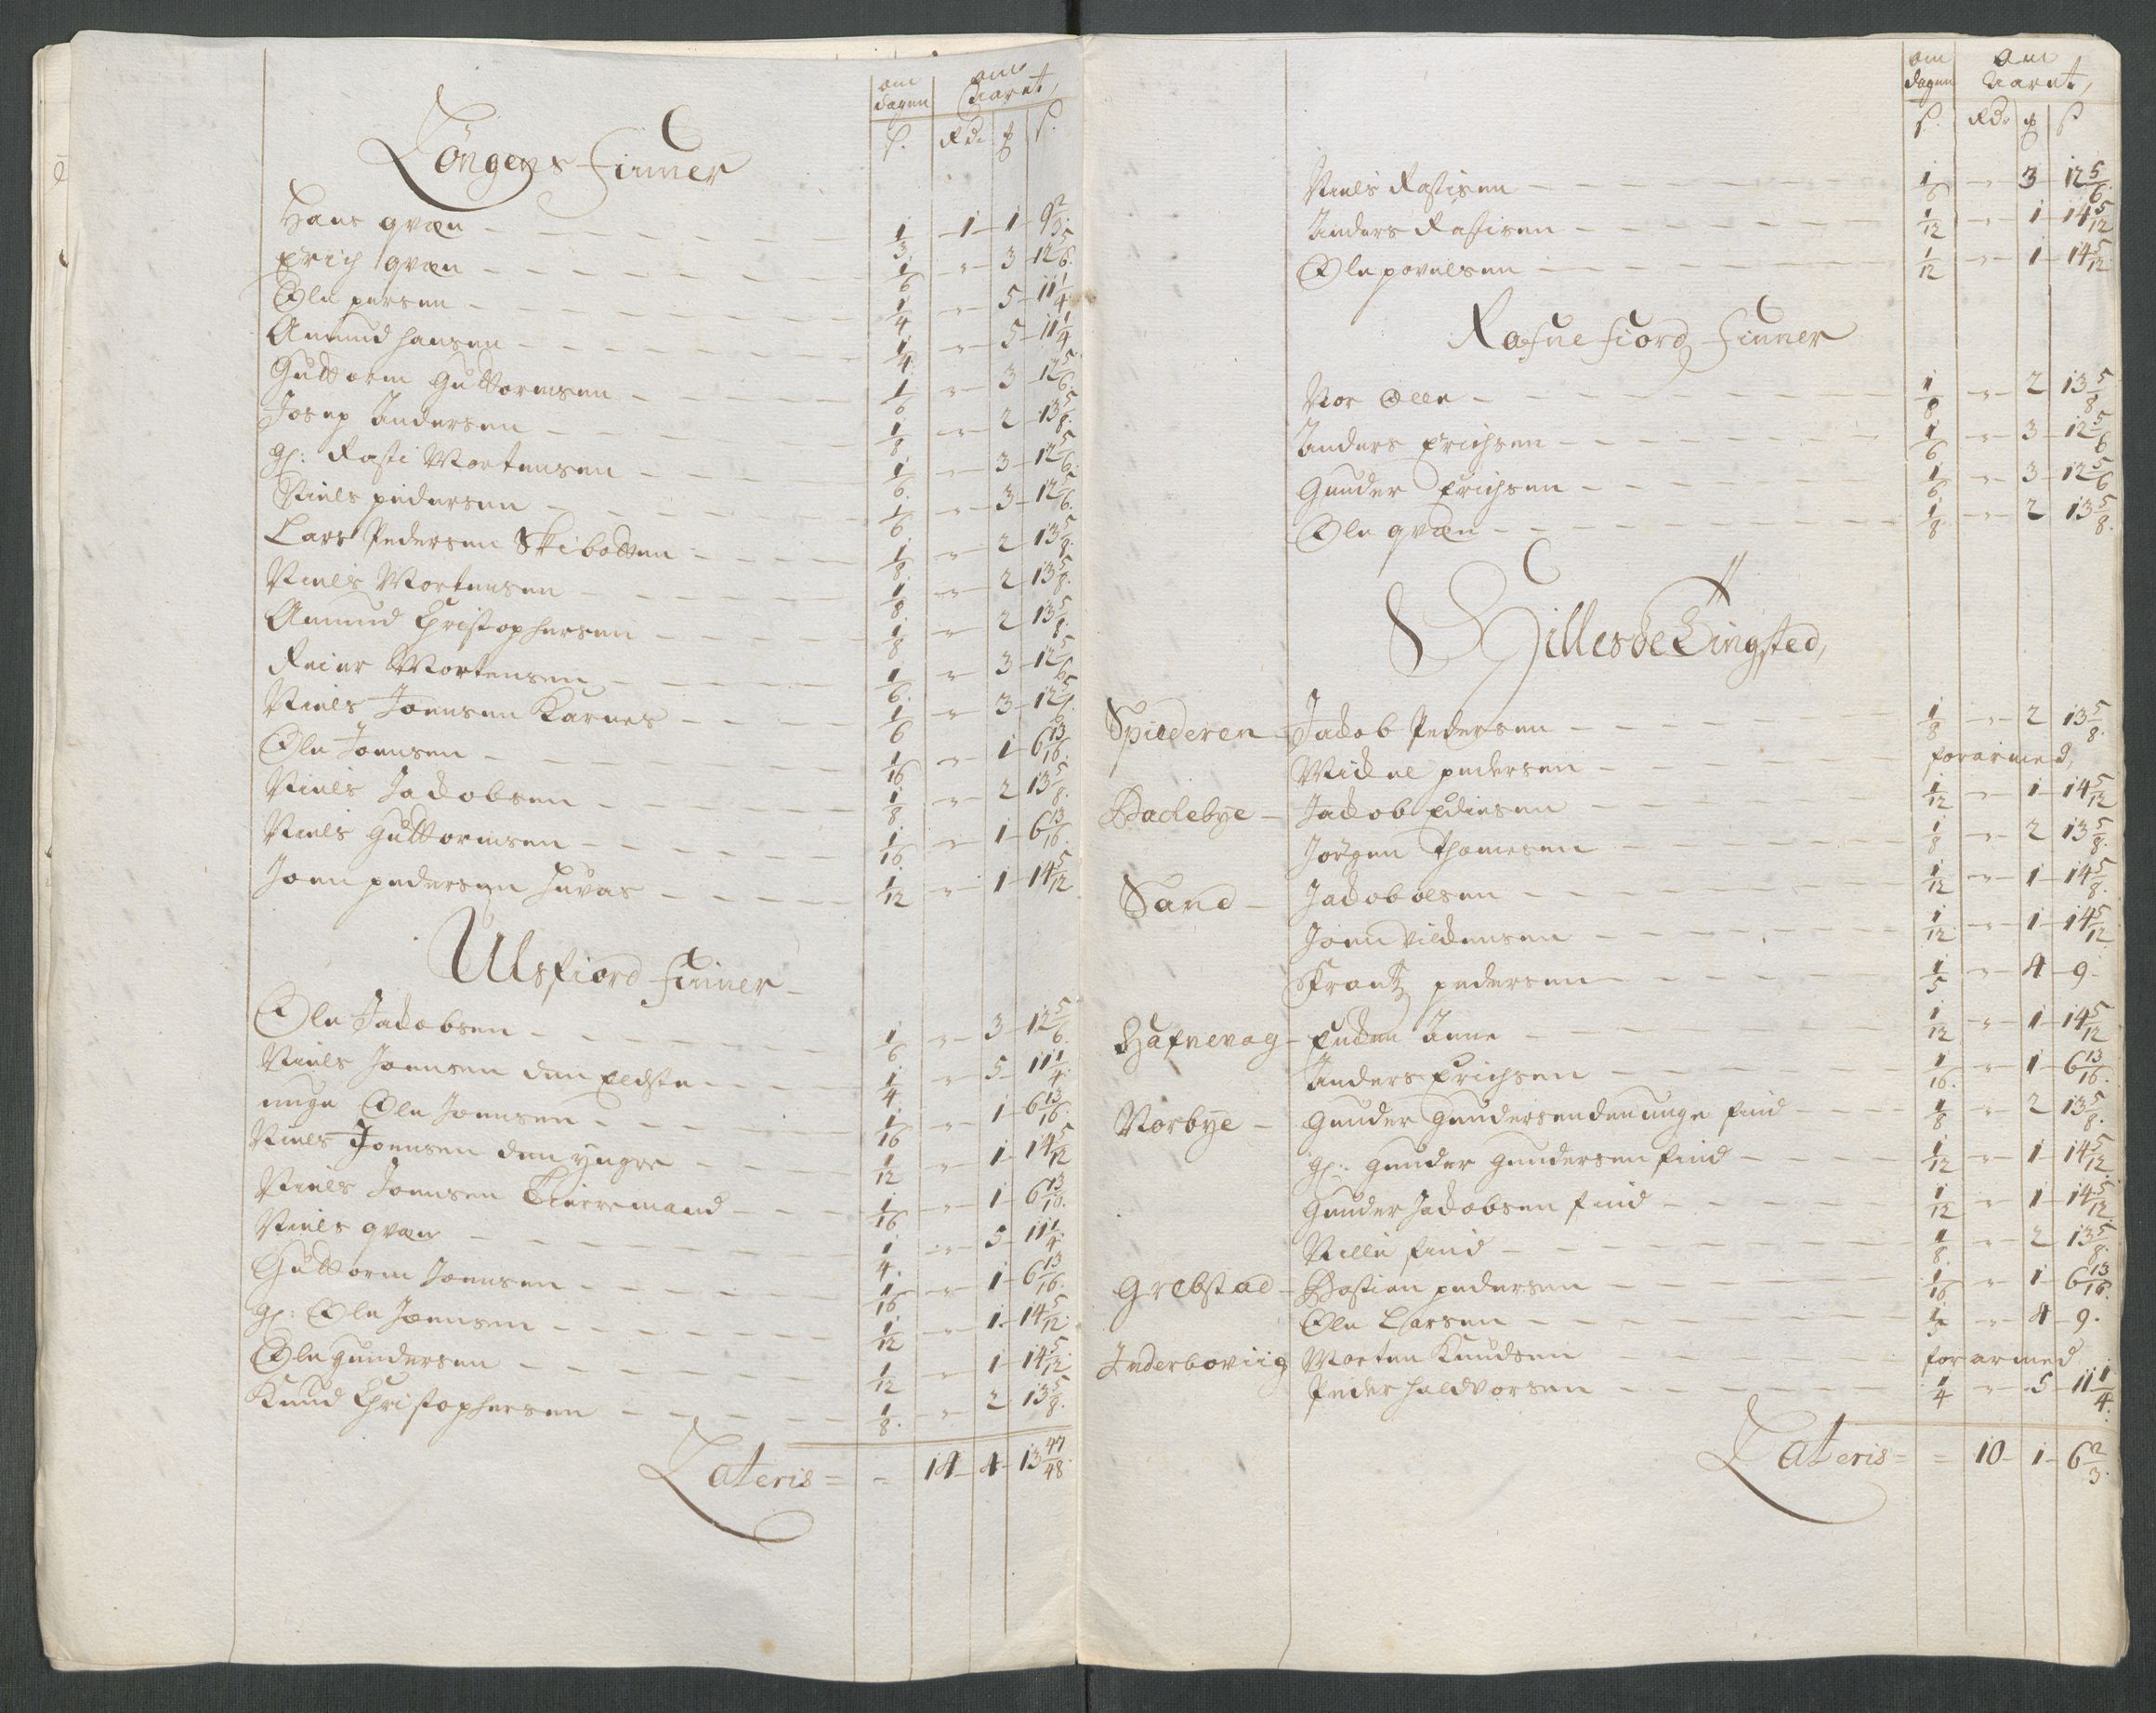 om dagen om Aaret,
ß. Rdr ₰ ß.
Löngens Finner
Hans qvæn 1/3 1 1 9 2/3.
Erich qvæn 1/6 " 3 12 5/6.
Ole persen 1/4 " 5 11 1/4
Amund hansen 1/4. " 5 11 1/4
Guttorm Guttormsen 1/6 " 3 12 5/6.
Josep Andersen 1/8 " 2 13 5/8.
gl: Rasti Mortensen 1/6. " 3 12 5/6.
Niels pedersen 1/6. " 3 12 5/6.
Lars Pedersen Skibotten 1/8. " 2 13 5/8.
Niels Mortensen 1/8. " 2 13 5/8.
Amund Christophersen 1/8 " 2 13 5/8.
Reier Mortensen 1/6. " 3 12 5/6
Niels Joensen Karnes 1/6 " 3 12 5/6.
Ole Joensen 1/16 " 1 6 13/16.
Niels Jacobsen 1/8 " 2 13 5/8.
Niels Guttormsen 1/16. " 1 6 13/16.
Joen pedersen 1/12 " 1 14 5/12
Ulsfiord Finner
Ole Jacobsen 1/6. " 3 12 5/6.
Niels Joensen den Eldste 1/4. " 5 11 1/4.
unge Ole Joensen 1/16 " 1 6 13/16.
Niels Joensen den yngre 1/12 " 1 14 5/12
Niels Joensen 1/16 " 1 6 13/16.
Niels qvæn 1/4. " 5 11 1/4.
Guttorm Joensen 1/16 " 1 6 13/16.
gl: Ole Joensen 1/12 " 1 14 5/12.
Ole gundersen 1/12 " 1 14 5/12.
Knud Christophersen 1/8. " 2 13 5/8.
Lateris = = 14 4 13 47/48.
om dagen om Aaret,
ß. Rdr ₰ ß
Niels Rastisen 1/6 " 3 12 5/6.
Anders Rastisen 1/12 " 1 14 5/12
Ole povelsen 1/12 " 1 14 5/12
Rafne fiord Finner
Mor Olle 1/8 " 2 13 5/8
Anders Erichsen 1/6 " 3 12 5/6
Gunder Erichsen 1/6. " 3 12 5/6
Ole qvæn 1/8 " 2 13 5/8.
Hillesøe Tingsted,
Spilderen Jacob Pedersen 1/8 " 2 13 5/8.
Mickel pedersen forarmed,
Backebye Jacob Edisen 1/12 " 1 14 5/12
Jørgen Thomesen 1/8 " 2 13 5/8.
Sand Jacob olsen 1/12 " 1 14 5/8.
Joen 1/12 " 1 14 5/12
Frantz pedersen 1/5 " 4 9
Hafnevag Enken Anne 1/12 " 1 14 5/12
Anders Erichsen 1/16. " 1 6 13/16.
Norbye Gunder Gundersen den unge find 1/8 " 2 13 5/8.
gl: Gunder Gundersen find 1/12 " 1 14 5/12
Gunder Jacobsen find 1/12 " 1 14 5/12
Nille find 1/8. " 2 13 5/8.
Grebstad Bastian pedersen 1/16 " 1 6 13/16.
Ole Larsen 1/5 " 4 9.
Inderboviig Morten Knudsen forarmed
Peder haldvorsen 1/4 " 5 11 1/4.
Lateris = = 10 1 6 2/3.